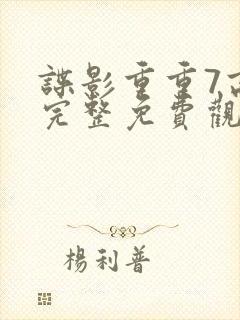 諜影重重7
完整免費觀
楊利普